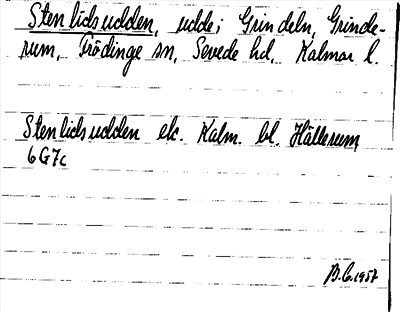 Stenlidsudden, udde i Grindeln, Grinde-
rum, Frödinge sn, Sevede hd, Kalmar l.
Stenlidsudden ek. Kalm. bl. Hällerum
6G7c
B.C. 1957